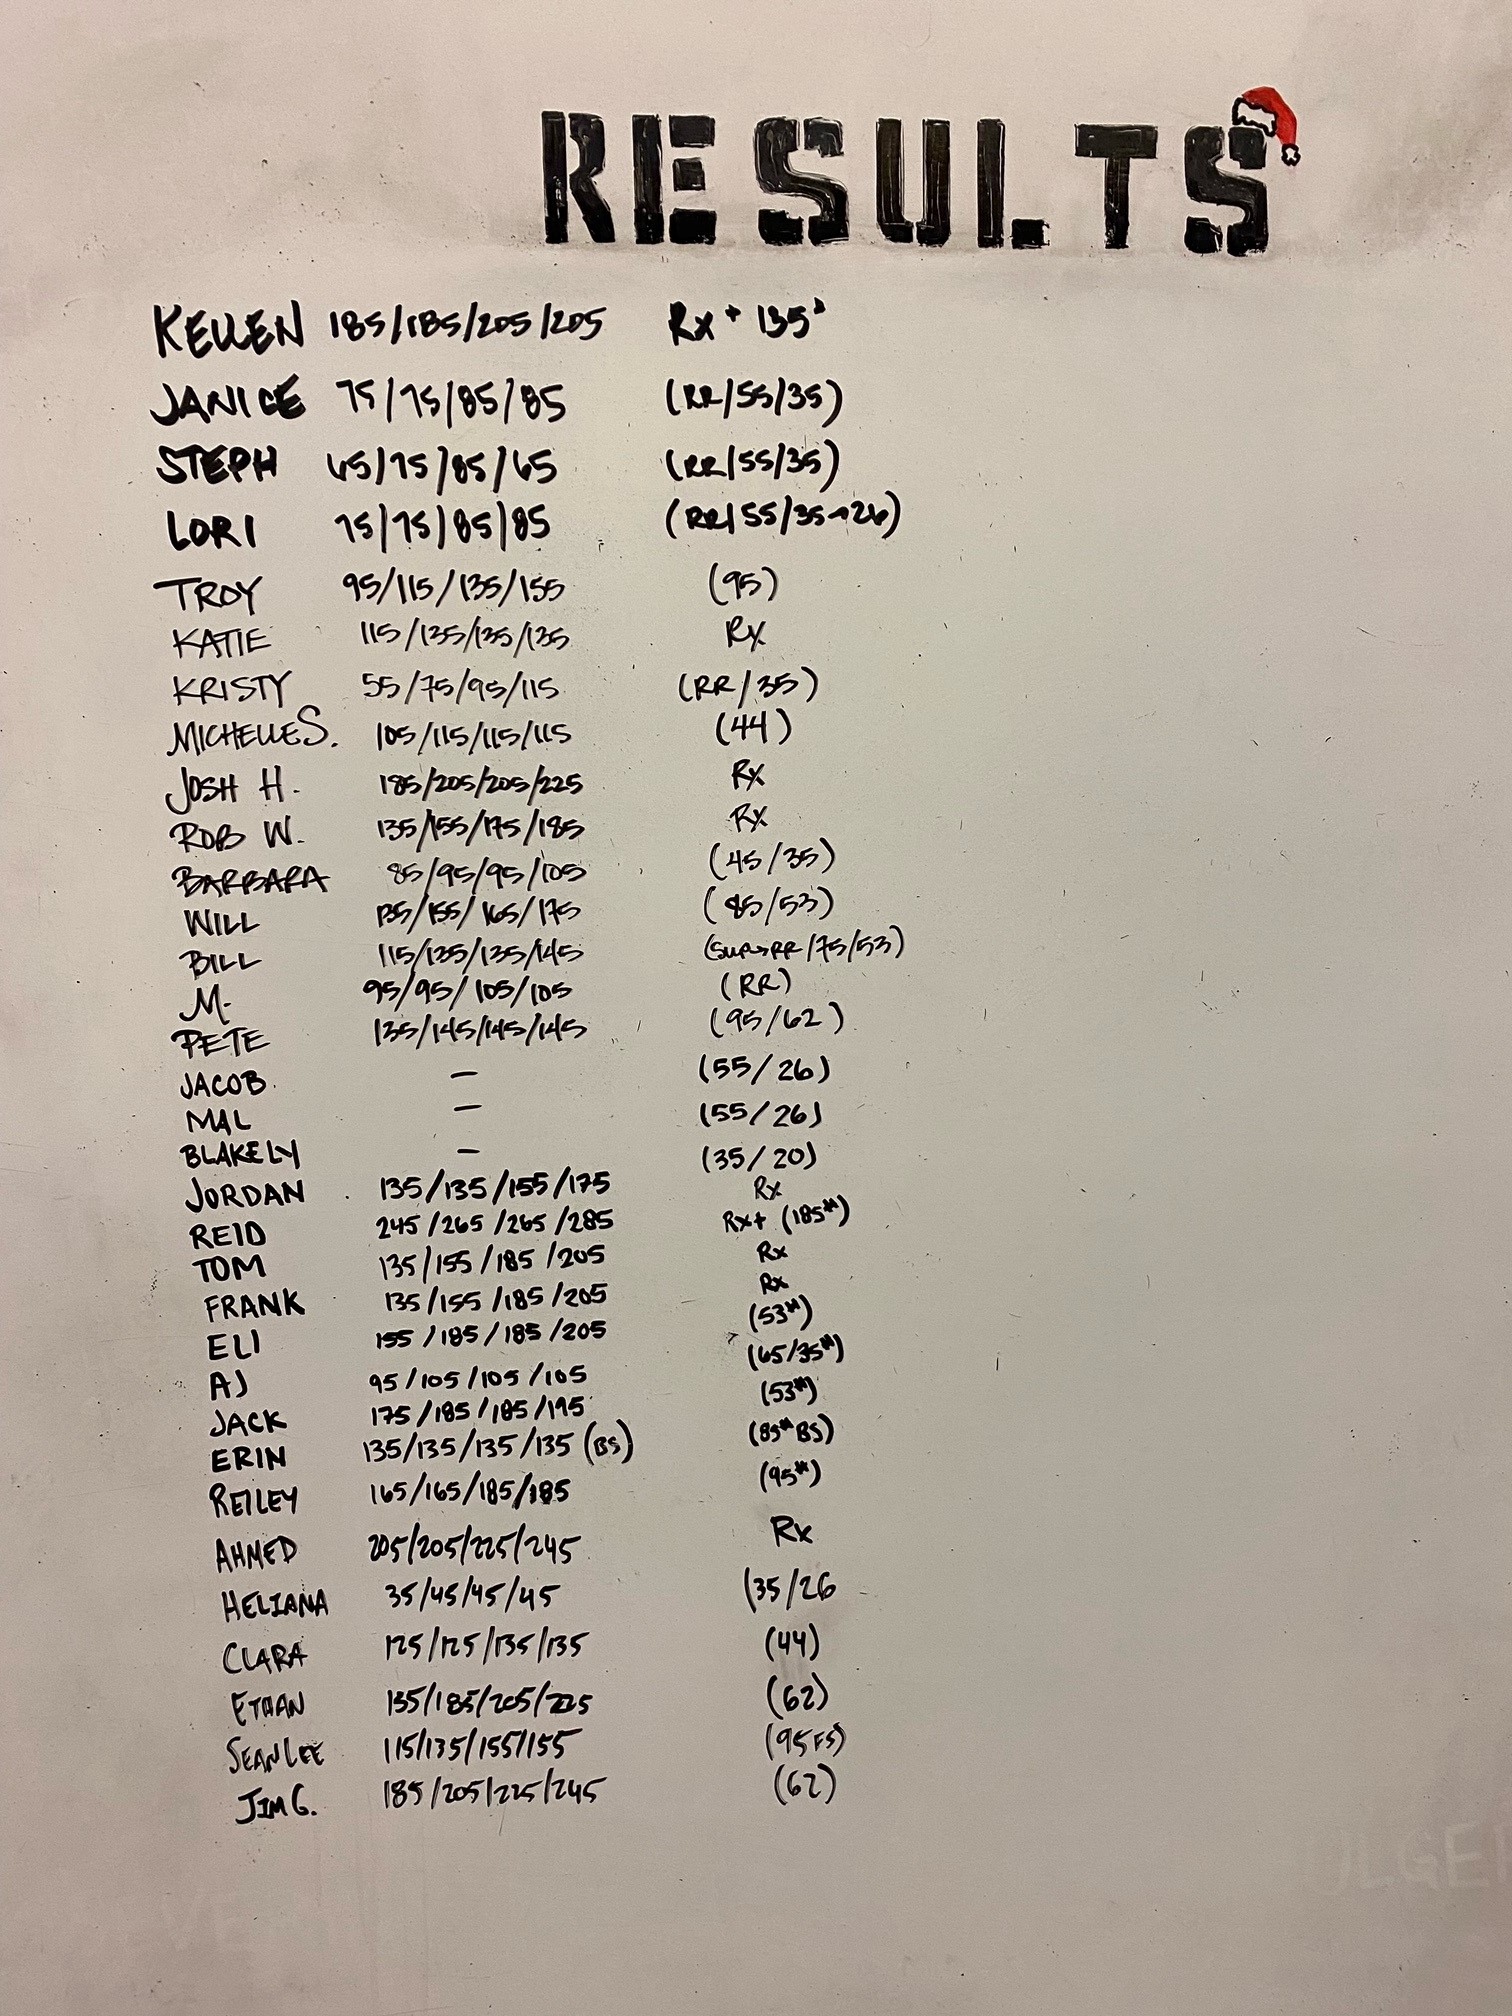 RESULTS
KELLEN 185/185/205/205 Rx + 135
JANICE 75/75/85/85 (RR/55/35)
STEPH 65/75/85/65 (RR/55/35)
LORI 75/75/85/85 (RR/55/35→26)
TROY 95/115/135/155 (95)
KATIE 115/135/135/135 Rx
KRISTY 55/75/95/115 (RR/35)
MICHELLE S. 105/115/115/115 (44)
JOSH H. 185/205/205/225 Rx
ROB W. 135/155/175/185 Rx
BARBARA 85/95/95/105 (45/35)
WILL 135/155/165/175 (85/53)
BILL 115/135/135/145 (SU→RR/75/53)
M. 95/95/105/105 (RR)
PETE 135/145/145/145 (95/62)
JACOB. — (55/26)
MAL — (55/26)
BLAKELY — (35/20)
JORDAN 135/135/155/175 Rx
REID 245/265/265/285 Rx+ (185#)
TOM 135/155/185/205 Rx
FRANK 135/155/185/205 Rx
ELI 155/185/185/205 (53#)
AJ 95/105/105/105 (65/35#)
JACK 175/185/185/195 (53#)
ERIN 135/135/135/135 (BS) (85# BS)
REILEY 165/165/185/185 (95#)
AHMED 205/205/225/245 Rx
HELIANA 35/45/45/45 (35/26
CLARA 125/125/135/135 (44)
ETHAN 135/185/205/225 (62)
SEAN LEE 115/135/155/155 (95 FS)
JIM G. 185/205/225/245 (62)